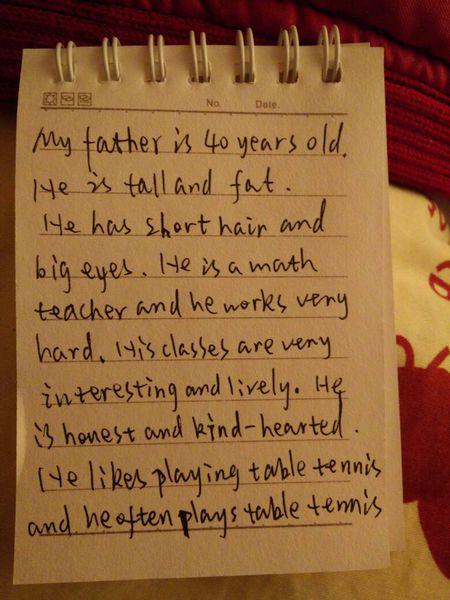 No. Date.
My father is 40 years old.
He is tall and fat.
He has short hair and
big eyes. He is a math
teacher and he works very
hard. His classes are very
interesting and lively. He
is honest and kind-hearted.
He likes playing table tennis
and he often plays table tennis